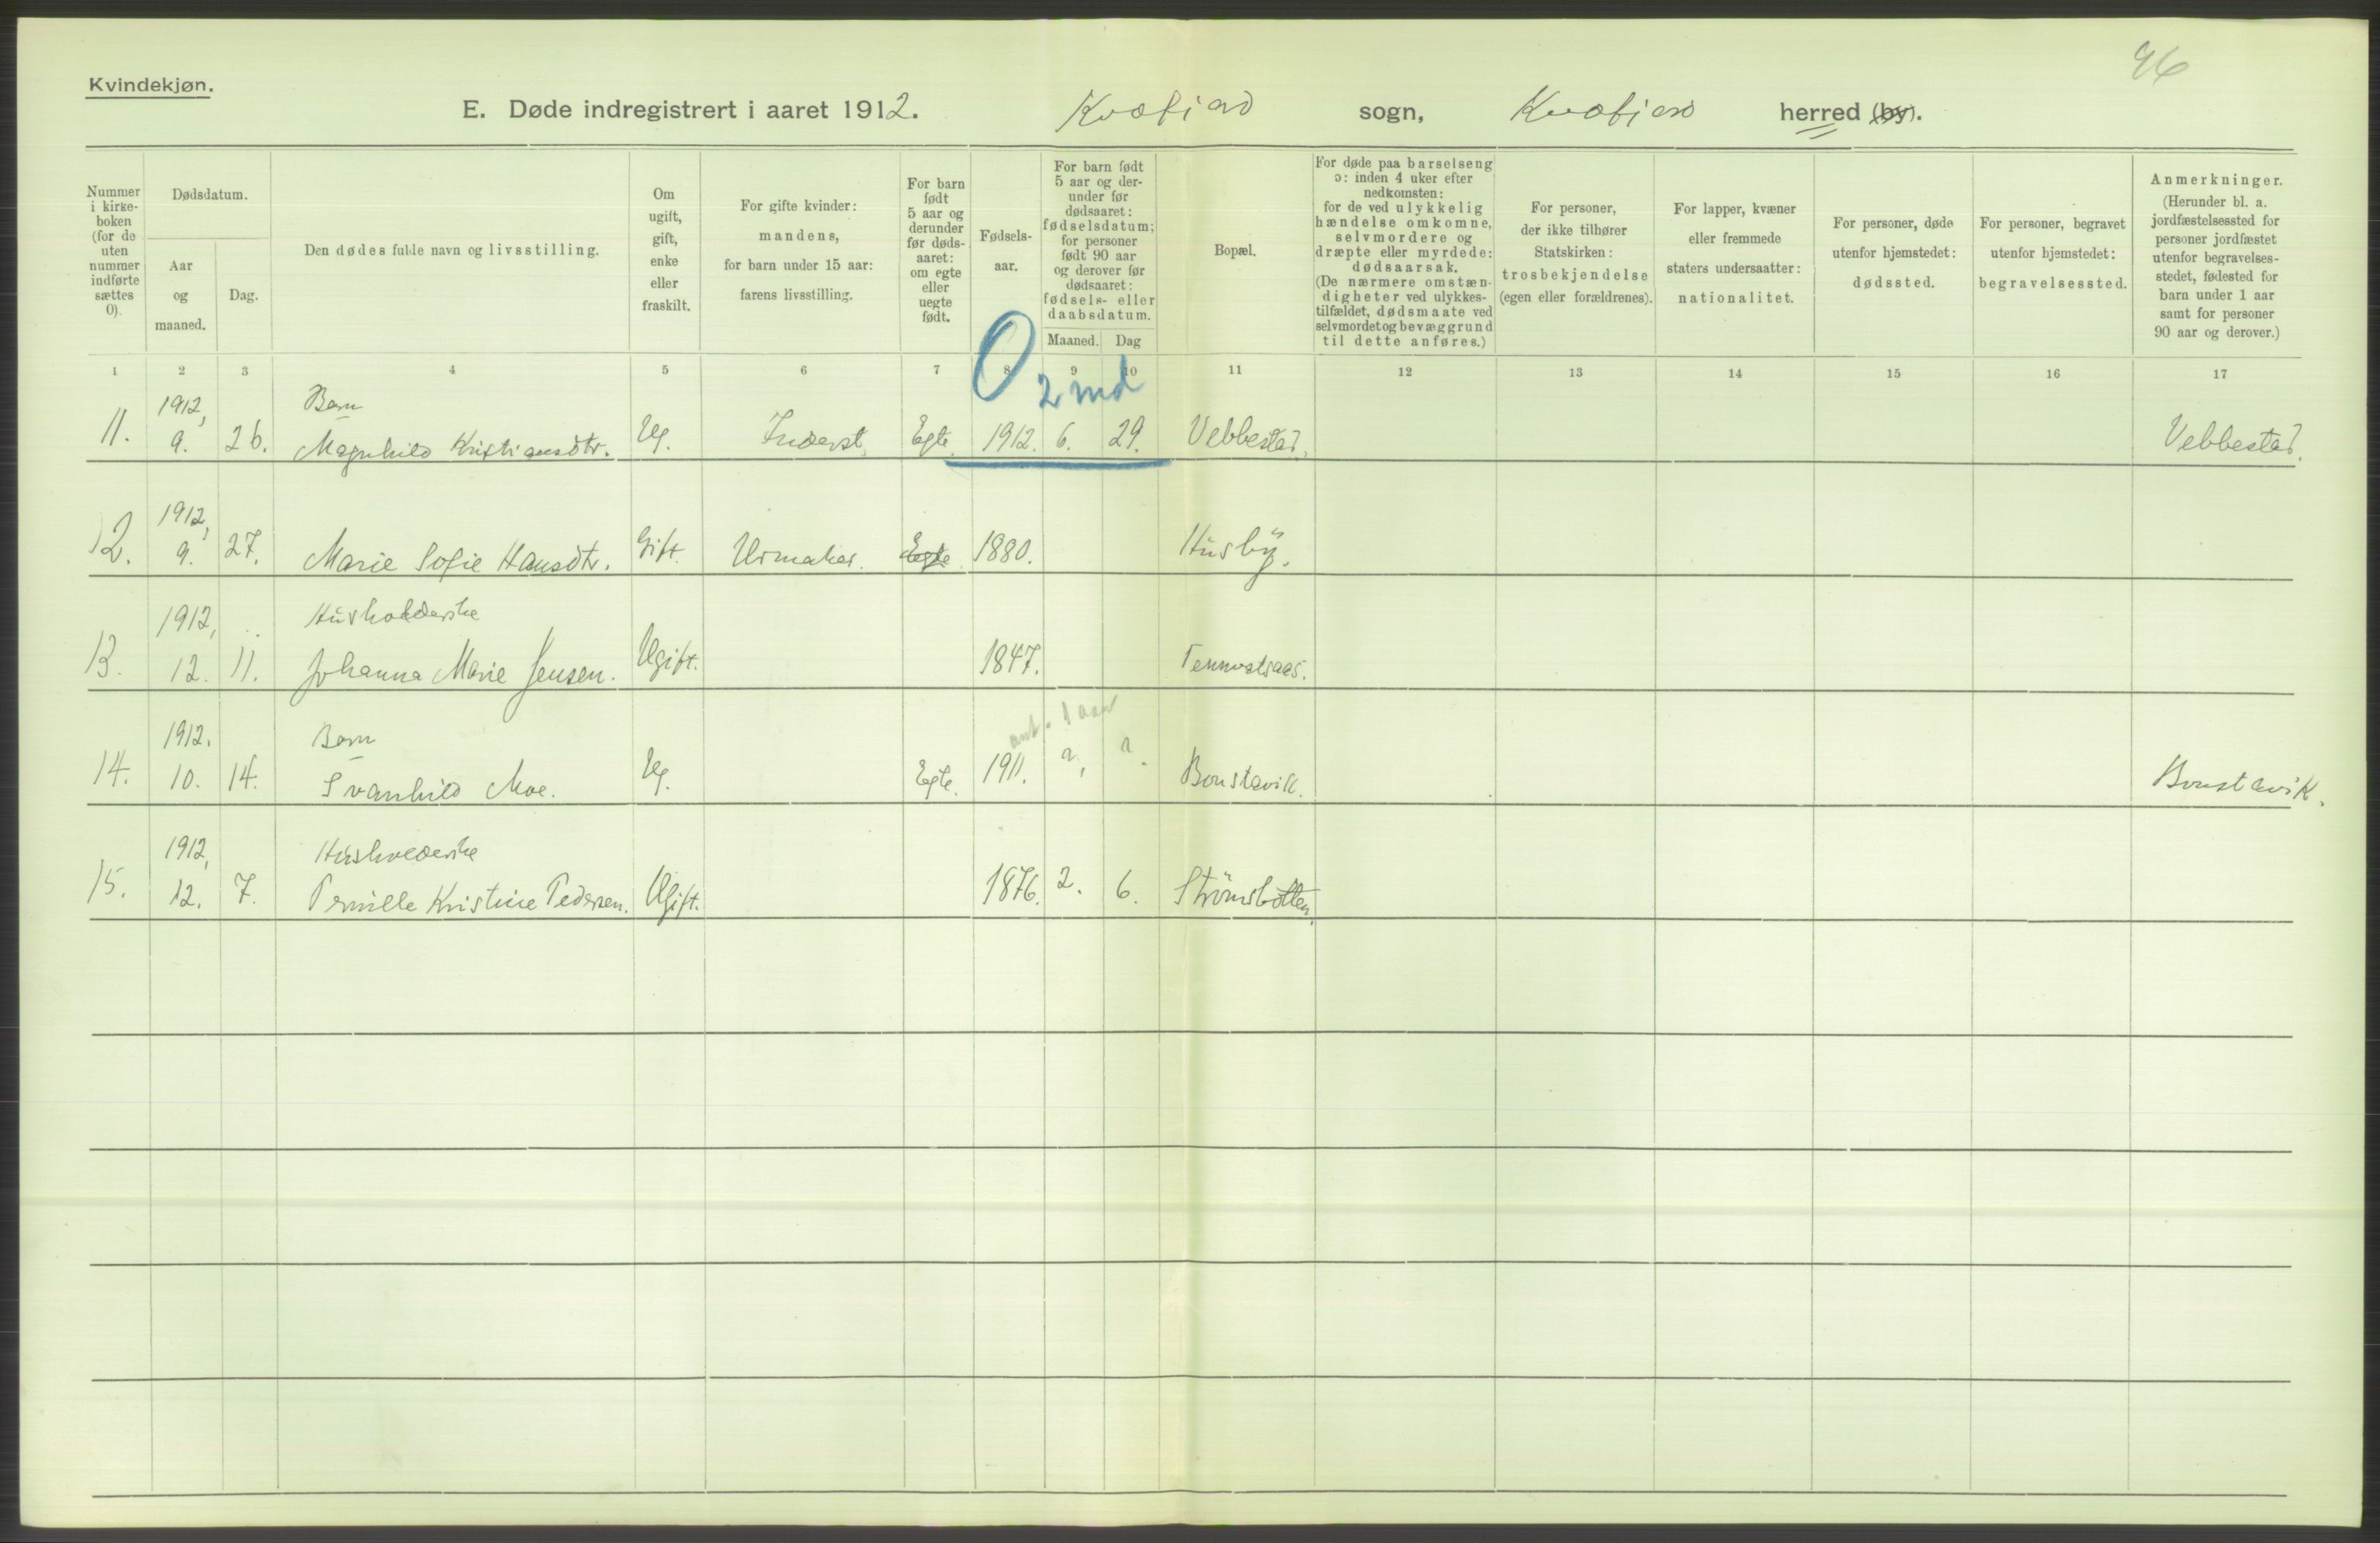 96
Kvindekjøn.
E. Døde indregistrert i aaret 1912. Kvæfjord sogn, Kvæfjord herred (by).
Nummer i kirkeboken (for de uten nummer indførte sættes 0).
Dødsdatum.
Aar og maaned.
Dag.
Den dødes fulde navn og livsstilling.
Om ugift, gift, enke eller fraskilt.
For gifte kvinder: mandens, for barn under 15 aar: farens livsstilling.
For barn født 5 aar og derunder før dødsaaret: om egte eller uegte født.
Fødselsaar.
For barn født 5 aar og derunder før dødsaaret: fødselsdatum; for personer født 90 aar og derover før dødsaaret: fødsels- eller daabsdatum.
Maaned. Dag
Bopæl.
For døde paa barselseng ɔ: inden 4 uker efter nedkomsten: for de ved ulykkelig hændelse omkomne, selvmordere og dræpte eller myrdede: dødsaarsak. (De nærmere omstændigheter ved ulykkestilfældet, dødsmaate ved selvmordet og bevæggrund til dette anføres.)
For personer, der ikke tilhører Statskirken: trosbekjendelse (egen eller forældrenes).
For lapper, kvæner eller fremmede staters undersaatter: nationalitet.
For personer, døde utenfor hjemstedet: dødssted.
For personer, begravet utenfor hjemstedet: begravelsessted.
Anmerkninger. (Herunder bl. a. jordfæstelsessted for personer jordfæstet utenfor begravelsesstedet, fødested for barn under 1 aar samt for personer 90 aar og derover.)
1 2 3 4 5 6 7 8 9 10 11 12 13 14 15 16 17
0 2 md
1912, Barn
11. 9. 26. Magnhild Kristiansdtr. Ug. Inderst Egte. 1912. 6. 29. Vebbestad. Vebbestad.
1912,
12. 9. 27. Marie Sofie Hansdtr. Gift. Urmaker. Egte 1880. Husby.
1912, Husholderske
13. 12. 11. Johanna Marie Jensen. Ugift. 1847. Tennvatsaas.
ant. 1 aar
1912. Barn
14. 10. 14. Svanhild Moe. Ug. Egte. 1911. ?, ?. Borkstavik.
1912, Husholderske
15. 12. 7. Pernille Kristine Pedersen. Ugift. 1876. 2. 6. Strömsbotten.